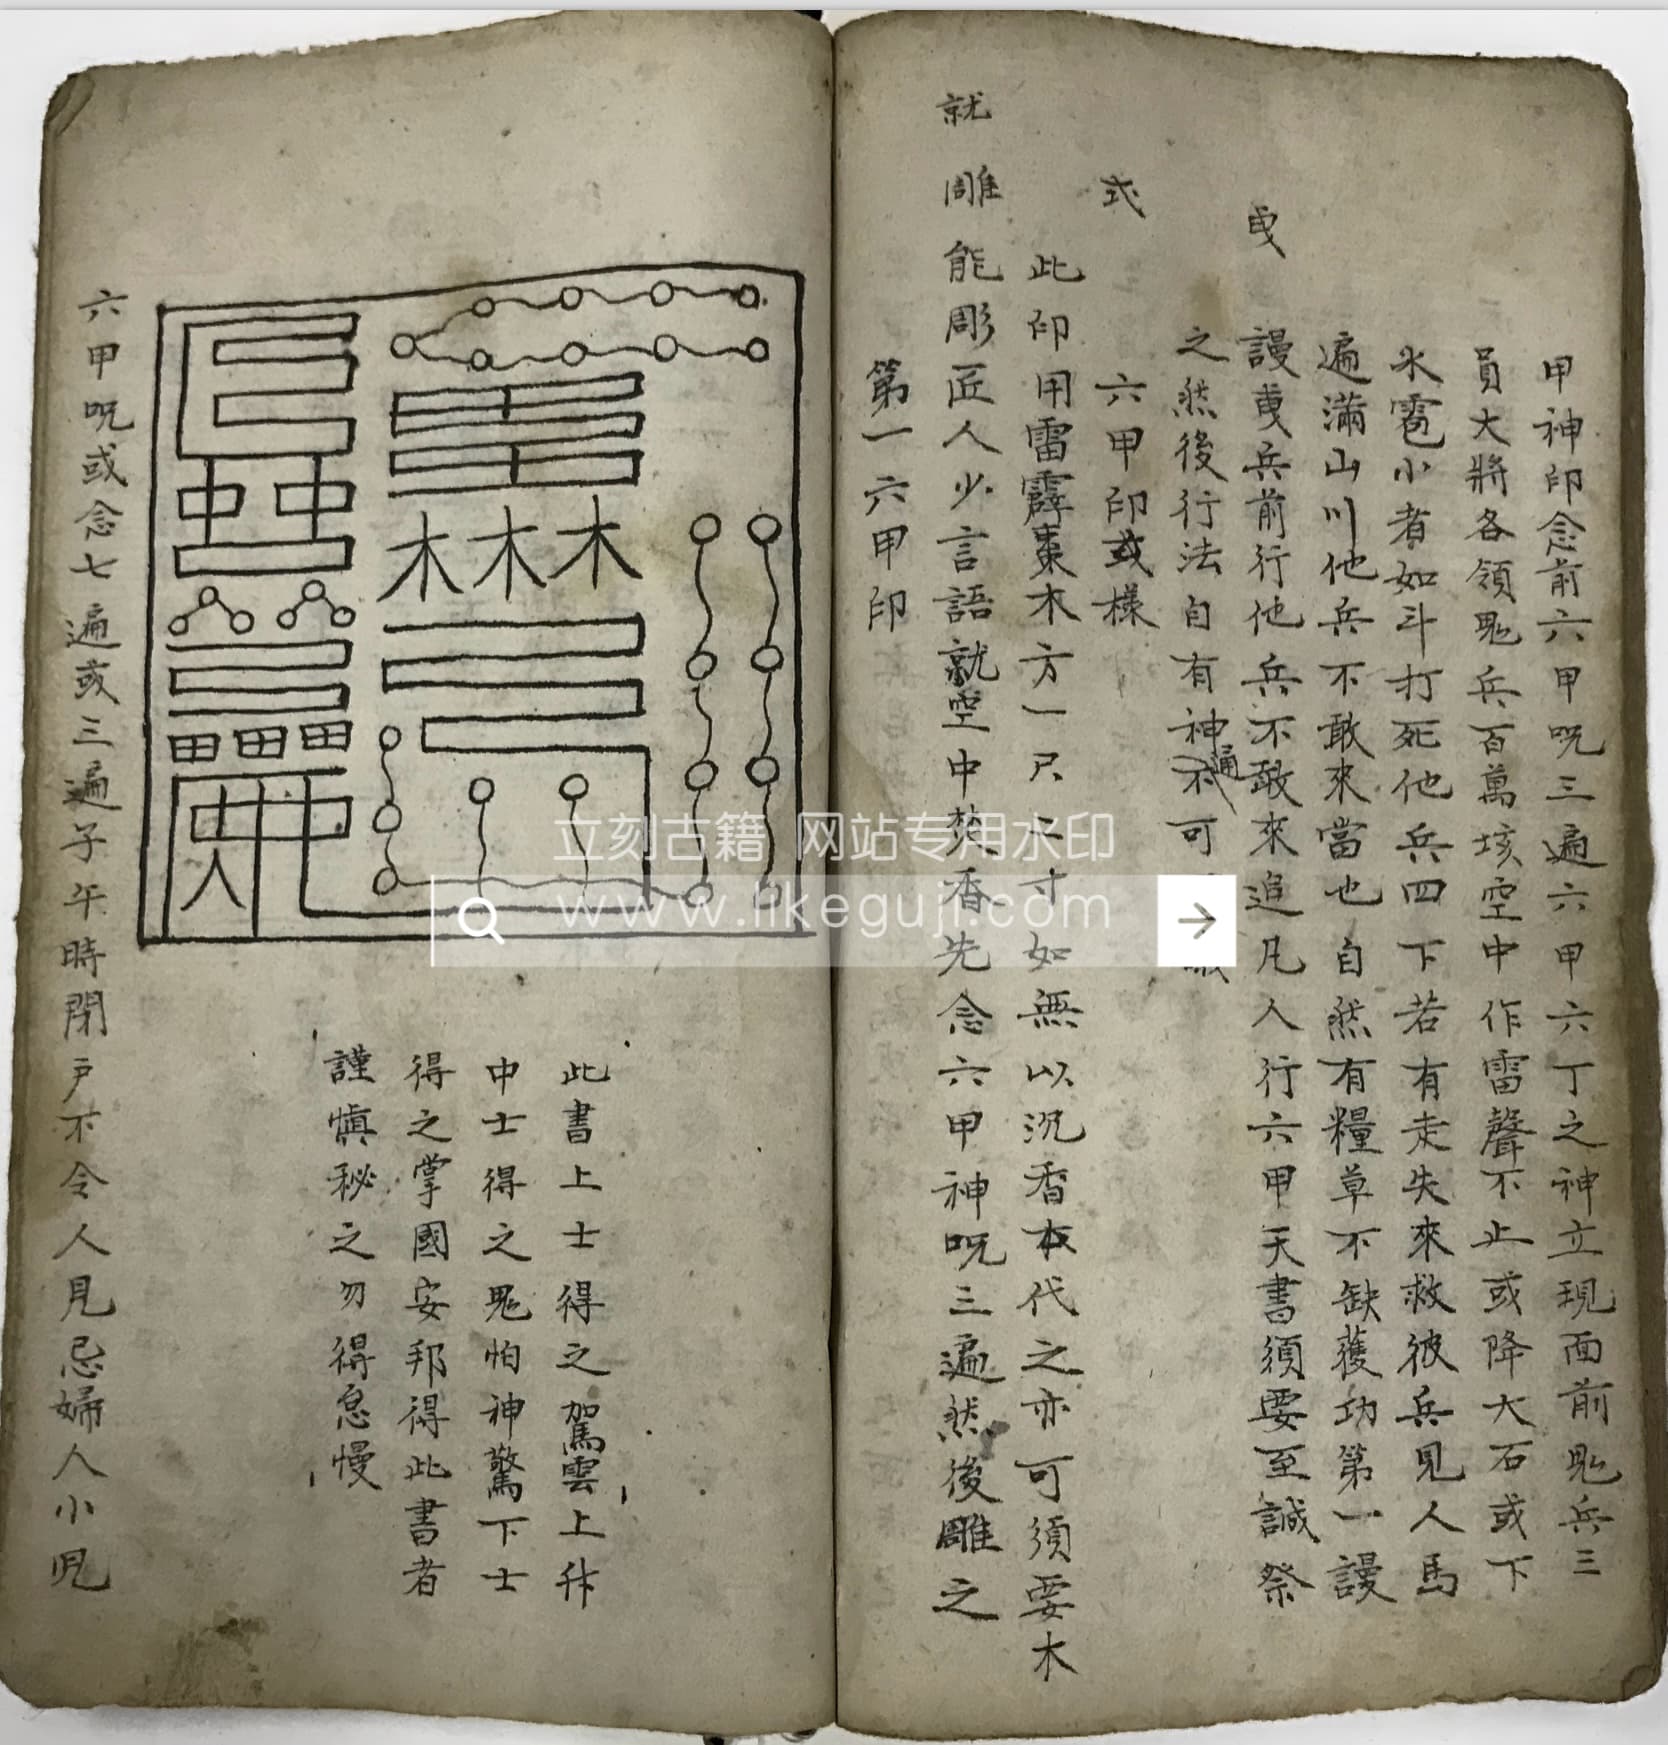 甲神印念前六甲呪三遍六甲六丁之神立現面前鬼兵三
員大將各領鬼兵百萬垓空中作雷聲不止或降大石或下
氷雹小者如斗打死他兵四下若有走失來救彼兵見人馬
遍滿山川他兵不敢來當也自然有糧草不缺獲功第一謾
謾曳兵前行他兵不敢來追凡人行六甲天書須要至誠祭
曳
之然後行法自有神通不可
六甲印或樣
式
此印用雷霹棗木方一尺二寸如無以沉香本代之亦可須要木
就雕能彫匠人少言語就空中焚香先念六甲神呪三遍然後雕之
第一六甲印
木木木
田田田
此書上士得之駕雲上升
中士得之鬼怕神驚下士
得之掌國安邦得此書者
謹慎秘之勿得怠慢
六甲呪或念七遍或三遍子午時閉戶不令人見忌婦人小児
立刻古籍 网站专用水印
www.likeguji.com